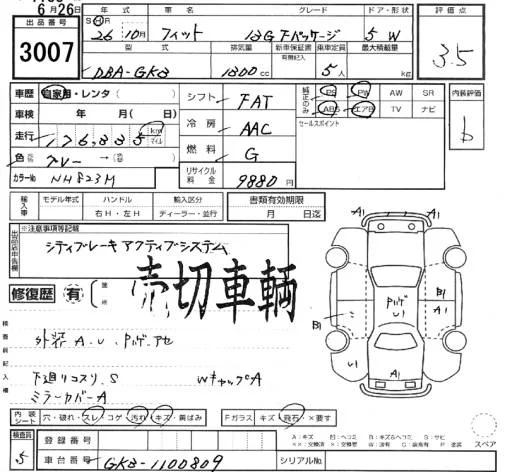 6月26日
出品番号
3007
年式 車名 グレード ドア・形状
S H R
26年10月 フィット 13G Fパッケージ 5 W
評価点
3.5
型式 排気量 新車保証書 乗車定員 最大積載量
有無記入
DBA-GK3 1300cc 5人 kg
車歴 自家用・レンタ( )
車検 年 月( 日)
走行 176,335 km マイル
色 グレー→( )
カラーNo NH823M
シフト FAT
冷房 AAC
燃料 G
リサイクル料金 9880円
純正のみ PS PW AW SR
ABS エアB TV ナビ
内装評価
b
セールスポイント
輸入車 モデル年式 ハンドル 輸入区分
右H・左H ディーラー・並行
書類有効期限
月 日迄
※注意事項等記載
シティブレーキ アクティブシステム
売切車輌
修復歴 有 箇所
外装 A.U.Pバゲ.アセ
下廻りコスリ.S WキャップA
ミラーカバーA
A1 A1
B1 A1
Pバゲ U1
B1
U1 A1
内装シート 穴・破れ・スレ・コゲ・汚れ・キズ・黄ばみ
Fガラス キズ・飛石・×要す
スペア
検査員 5
登録番号
車台番号 GK3-1100809
シリアルNo